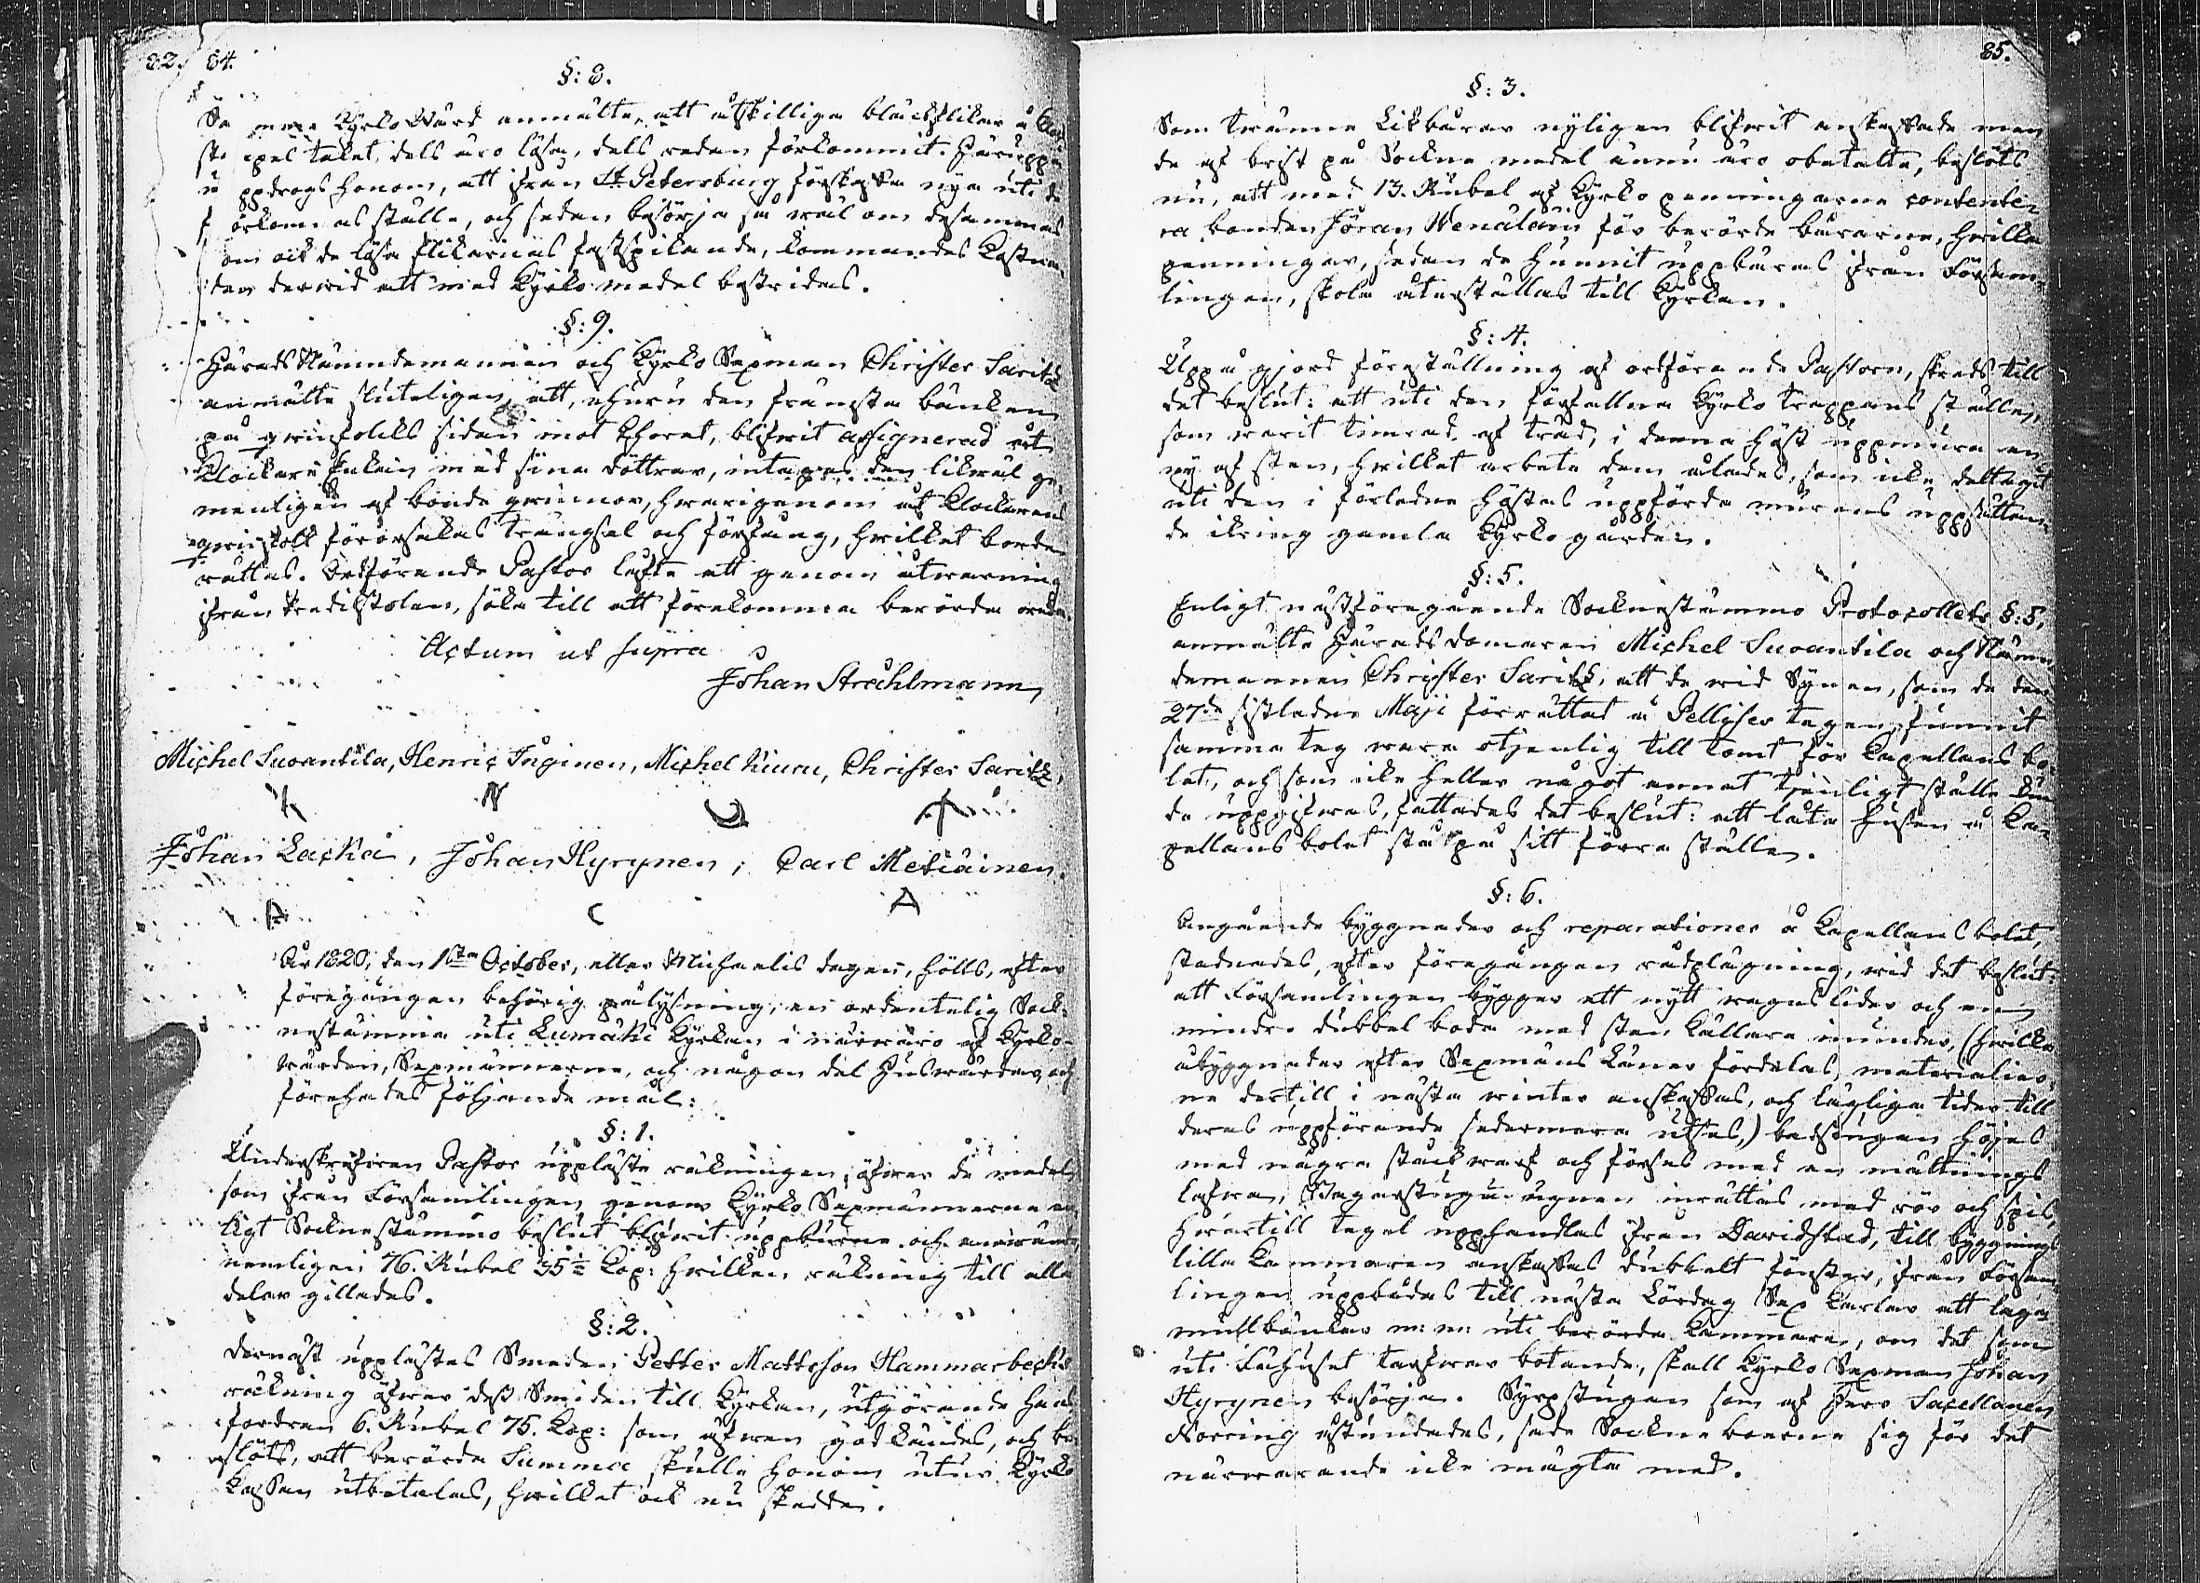 82. 84.
§: 8.
Samma Kyrko Wärd anmälte, att åtskillige bleckflikar å
stapel taket, dels äro lösa, dels redan förkommit. Häruppå
uppdrogs honom, att ifrån St Petersburg förskaffa nya uti de
förkomnas ställe, och sedan besörja så wäl om desammas
som ock de lösa flikarnas fastspikande, kommandes kostna-
den derwid att med Kyrko medel bestridas.
§: 9.
Härads Nämndemannen och Kyrko Sexman Christer Saritz
anmälte sluteligen, att, ehuru den främsta bänken
på qwinfolks sidan mot Choret, blifwit assignerad åt
Klockare Enkan med sina döttrar, intages den likwäl ge-
menligen af bonde qwinnor, hwarigenom åt Klockarens
qwinfolk förorsakas trängsel och förfång, hwilket borde
rättas. Ordförande Pastor lofte att genom åtwarning
ifrån Predikstolen, söka till att förekomma berörde oreda.
Actum ut supra
Johan Strählmann
Michel Suoantila, Henric Inginen, Michel Kiuru, Christer Saritz,
Johan Lacka, Johan Hyrynen, Carl Metiäinen.
A C A
År 1820, den 1sta October, eller Michaelis dagen, hölls, efter
föregången behörig pålysning, en ordentelig Sock-
nestämma uti Lumäki Kyrkan i närwaro af Kyrko-
wärden, Sexmännerne, och någon del Huswärdar, och
förehades följande mål:
§: 1.
Underskrefwen Pastor uppläste räkningen öfwer de medel
som ifrån Församlingen genom Kyrko Sexmännerne en-
ligt Sockne stämmo beslut blifwit uppburne och
nemligen 76. Rubel 35½ Kop: hwilken räkning till alla
delar gillades.
§: 2.
Dernäst upplästes Smeden Petter Mattsson Hammarbecks
räkning öfwer dess Smiden till Kyrkan, utgörande hans
fordran 6. Rubel 75. Kop: som äfwen godkändes, och be-
slöts, att berörde Summa skulle honom utur Kyrko
Kassan utbetalas, hwilket ock nu skedde.
85.
§: 3.
Som trenne Likbårar nyligen blifwit anskaffade men
de af brist på Sockne medel ännu äro obetalte, beslöts
nu, att med 13. Rubel af Kyrko penningarne contente-
ra bonden Jöran Wenäläin för berörde bårarne, hwilka
penningar, sedan de hunnit uppbäras ifrån Försam-
lingen, skola återställas till Kyrkan.
§: 4.
Uppå gjord föreställning af ordförande Pastorn, skreds till
det beslut: att uti den förfallna Kyrko trappans ställe,
som warit timrad af träd, i denna höst uppmura en
ny af sten, hwilket arbete dem ålades, som icke deltagit
uti den i förledne höstas uppförde murens uppsättan-
de ikring gamla Kyrko gården.
§: 5.
Enligt nästföregående Sockne stämmo Protocollets §: 5,
anmälte Härads domaren Michel Suoantila och Nämn-
demannen Christer Saritz, att de wid Synen, som de den
27de sistledne Maji förrättat å Pellisen tegen, funnit
samma teg wara otjenlig till tomt för Kapellans bo-
let, och som icke heller något annat tjenligt ställe kun-
de uppgifwas, fattades det beslut: att låta husen å Ka-
pellans bolet stå på sitt förra ställe.
§: 6.
Angående byggnader och reparationer å Kapellans bolet,
stadnades, efter föregången rådplägning, wid det beslut:
att Församlingen bygger ett nytt wagns lider och en
mindre dubbel bode med sten källare inunder, (hwilka
åbyggnader efter Sexmans Länen fördelas, materialier-
ne dertill i nästa winter anskaffas, och läglige tider till
deras uppförande sedermera utses,) badstugan höjes
med några stockwarf och förses med en mältnings
lafwa, Bagarstugu ugnen inrättas med rör och spis,
hwartill tegel upphandlas ifrån Davidstad, till byggnings
lilla Kammaren anskaffas dubbelt fönster, ifrån Försam-
lingen uppbådas till nästa Lördag Sex karlar att laga
mullbänkar m: m: uti berörde Kammare, om det som
uti Fähuset tarfwar botande, skall Kyrko Sexman Johan
Hyrynen besörja. Syrpstugan som af Herr Sacellanen
Norring åstundades, sade Sockneboerne sig för det
närwarande icke mägta med.